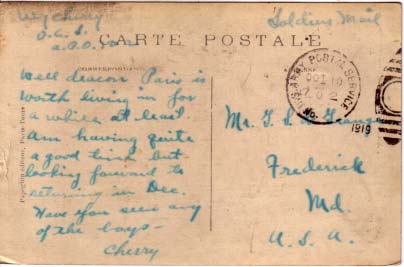 Wy Cherry
O.C.S.
A.P.O. 702
Soldiers Mail
CARTE POSTALE
CORRESPONDANCE
Well deacon Paris is
worth living in for
a while at least.
Am having quite
a good time but
looking forward to
returning in Dec.
Have you seen any
of the boys—
Cherry
U.S. ARMY POSTAL SERVICE
OCT 10
702
1919
Mr.
Frederick
Md.
U.S.A.